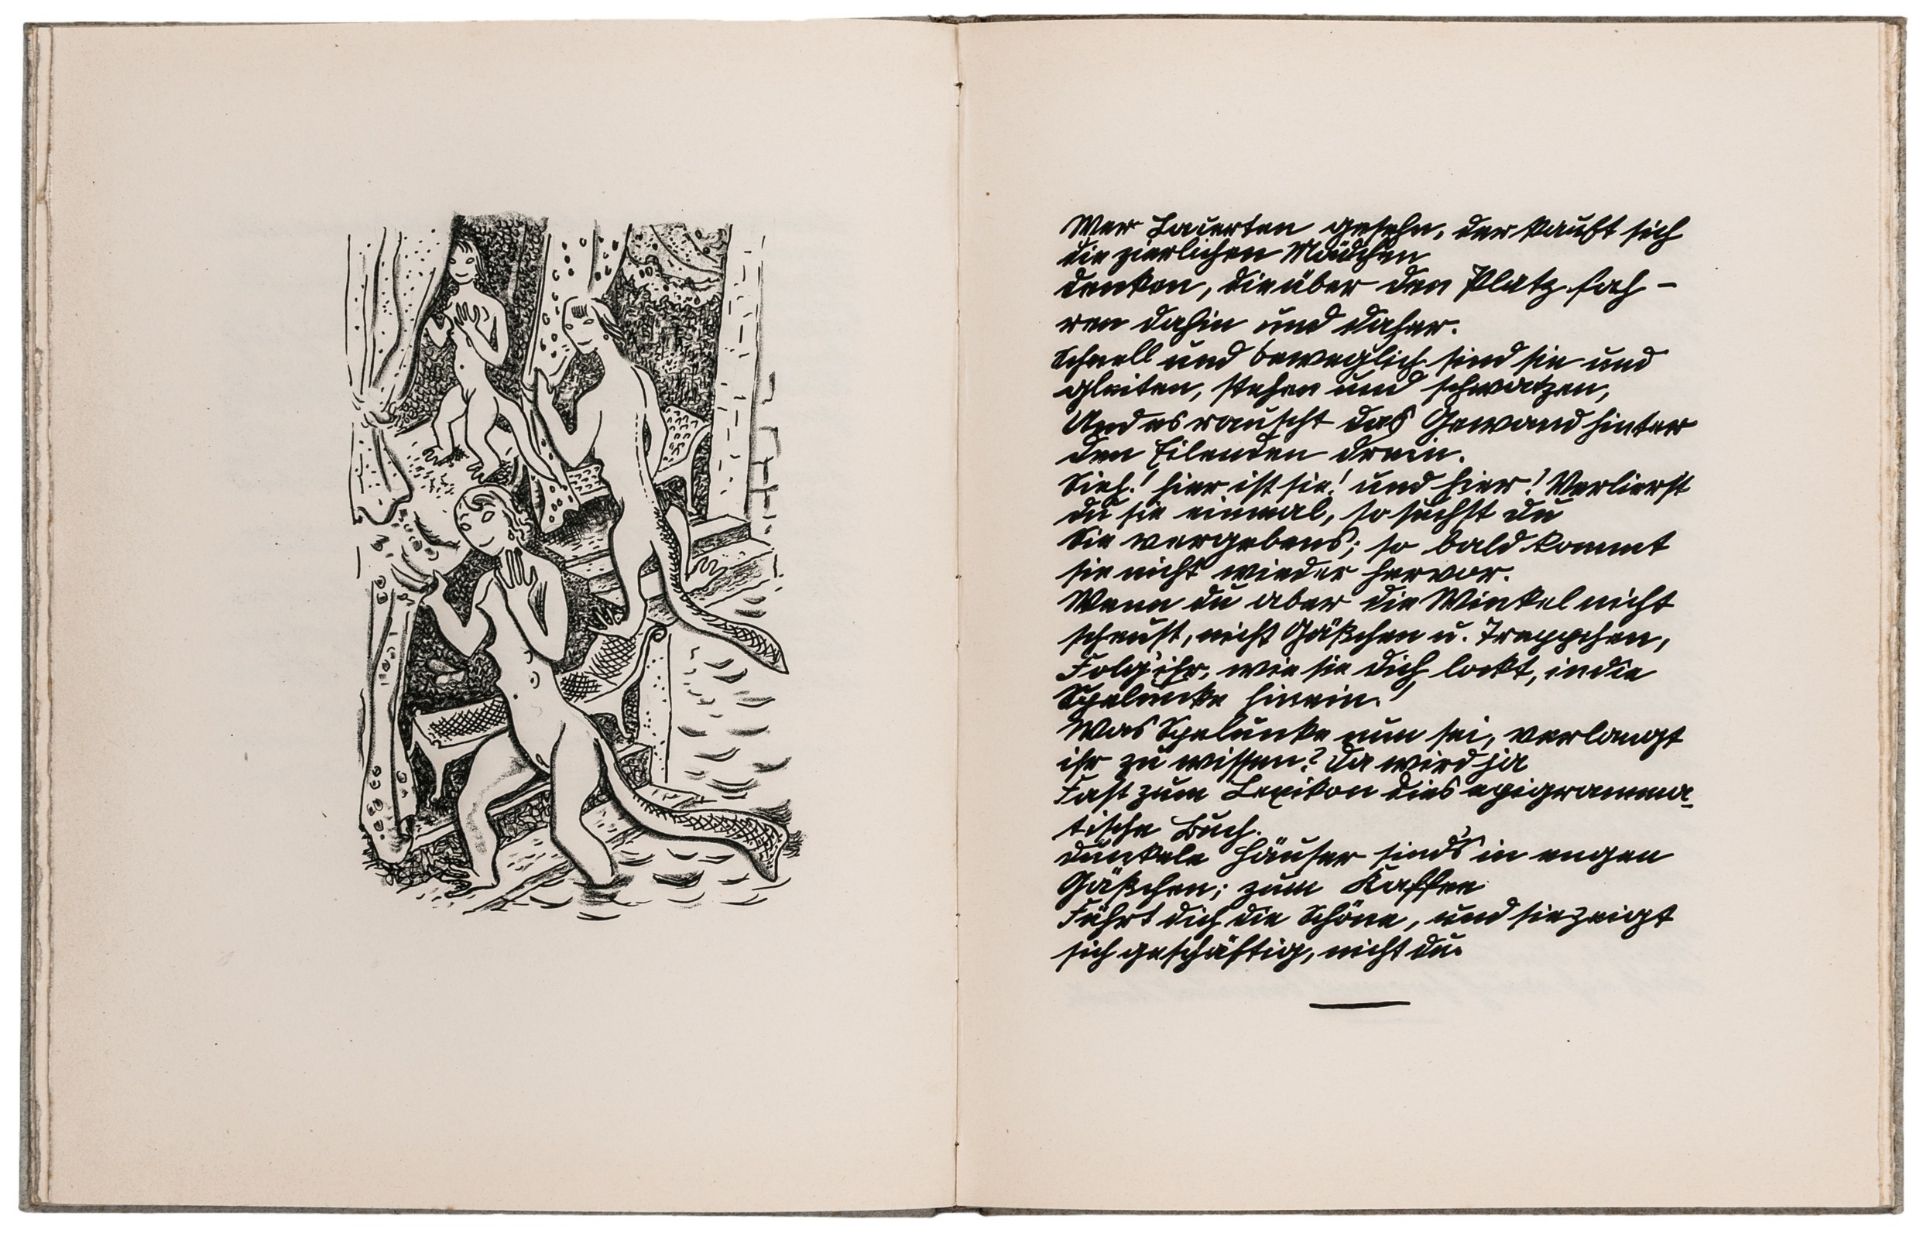 Wer Lacerten gesehn, der kauft sich
die zierlichen Mädchen
denken, die über den Platz fah-
ren dahin und daher.
Schnell und beweglich sind sie und
gleiten, stehen und schwatzen,
Und es rauscht das Gewand hinter
den Eilenden drein.
Sieh! hier ist sie! und hier! Verlierst
du sie einmal, so suchst du
Sie vergebens; so bald kommt
sie nicht wieder hervor.
Wenn du aber die Winkel nicht
scheust, nicht Gäßchen u. Treppchen,
Folg' ihr, wie sie dich lockt, in die
Spelunke hinein!
Was Spelunke nun sei, verlangt
ihr zu wissen? Da wird ja
Fast zum Lexikon dies epigramma-
tische Buch.
Dunkele Häuser sind's in engen
Gäßchen; zum Kaffee
Führt dich die Schöne, und sie zeigt
sich geschäftig, nicht du.